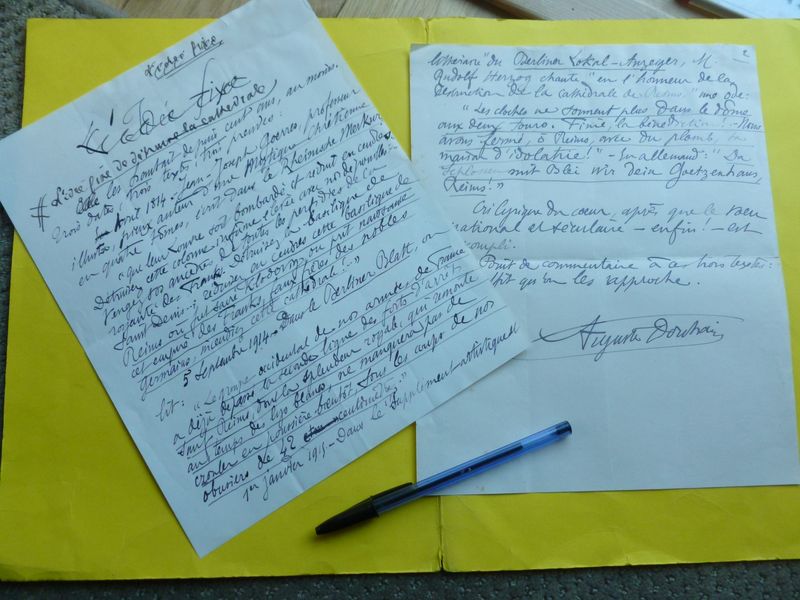 idée fixe
L'Idée Fixe
L'idée fixe de détruire la cathédrale
Elle les hantait depuis cent ans, au moins.
Trois dates, trois textes, trois preuves:
Avril 1814. Jean-Joseph Goerres, professeur
illustre, pieux auteur d'une Mystique Chrétienne
en quatre tomes, écrit dans le Rheinische Merkur
que leur Louvre soit bombardé et réduit en cendres
Détruisez cette colonne infâme
vengez ancêtres de toutes les perfidies de la
royauté des Francs. Détruisez la basilique de
Saint Denis; réduisez en cendres cette basilique de
Reims où fut sacré Klodovig, où prit naissance
cet empire des Franks, faux frères des nobles
Germains; incendiez cette cathédrale!"
5 Septembre 1914 - Dans le Berliner Blatt, on
lit:
"Le groupe occidental de nos armées de France
a déjà dépassé la seconde ligne des forts d'arrêt,
sauf Reims, dont la splendeur royale, qui remonte
au temps des lys blancs, ne manquera pas de
crouler en poussière bientôt sous les coups de nos
obusiers de 42 centimètres."
1er janvier 1915 - Dans le Supplément artistique et
2
littéraire du Berliner Lokal-Anzeiger, M.
Rudolf Herzog chante "en l'honneur de la
destruction de la cathédrale de Reims" une ode:
"Les cloches ne sonnent plus dans le dôme
aux deux tours. Finie, la bénédiction! Nous
avons fermé, ô Reims, avec du plomb, ta
maison d'idolâtrie!" - En allemand: "Da
Schlossen mit Blei wir dein Goetzenhaus,
Reims."
Cri lyrique du coeur, après que le voeu
national et séculaire - enfin! - est
accompli.
Point de commentaire à ces trois textes:
suffit qu'on les rapproche.
Auguste Dorchain